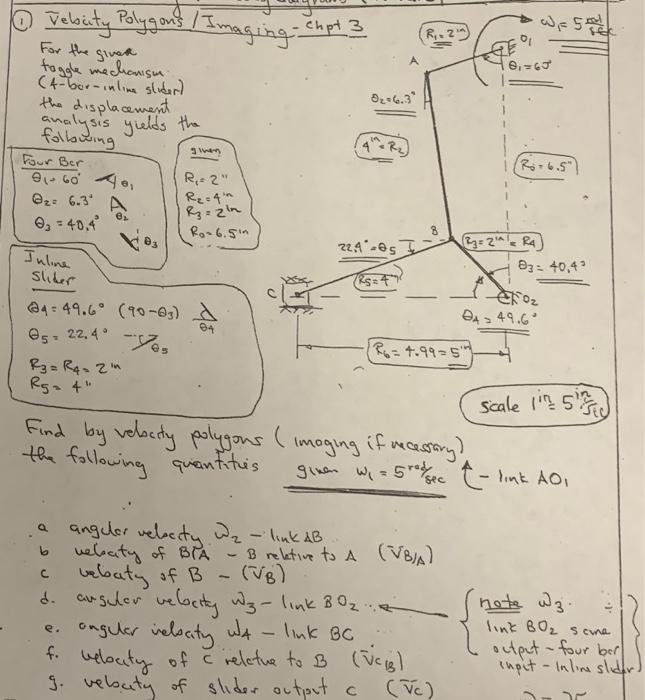 ① Velocity Polygons / Imaging - Chpt 3
For the given
toggle mechanism
(4-bar-inline slider)
the displacement
analysis yields the
following
Four Bar
θ1 = 60° θ1
θ2 = 6.3° θ2
θ3 = 40.4° θ3
given
R1 = 2"
R2 = 4in
R3 = 2in
R0 = 6.5in
Inline
Slider
θ4 = 49.6° (90-θ3) θ4
θ5 = 22.4° θ5
R3 = R4 = 2in
R5 = 4"
R1 = 2in
ω1 = 5 rad/sec
O1
A
θ1 = 60°
θ2 = 6.3°
4in = R2
R0 = 6.5"
B
22.4° = θ5
R3 = 2in = R4
R5 = 4"
θ3 = 40.4°
C
O2
θ4 = 49.6°
R6 = 4.99 = 5in
scale 1in = 5 in/sec
Find by velocity polygons (imaging if necessary)
the following quantities given ω1 = 5 rad/sec - link AO1
a angular velocity ω2 - link AB
b velocity of B/A - B relative to A (V̄B/A)
c velocity of B - (V̄B)
d. angular velocity ω3 - link BO2
e. angular velocity ω4 - link BC
f. velocity of C relative to B (V̄C/B)
g. velocity of slider output C (V̄C)
note ω3
link BO2 same
output - four bar
input - Inline slider